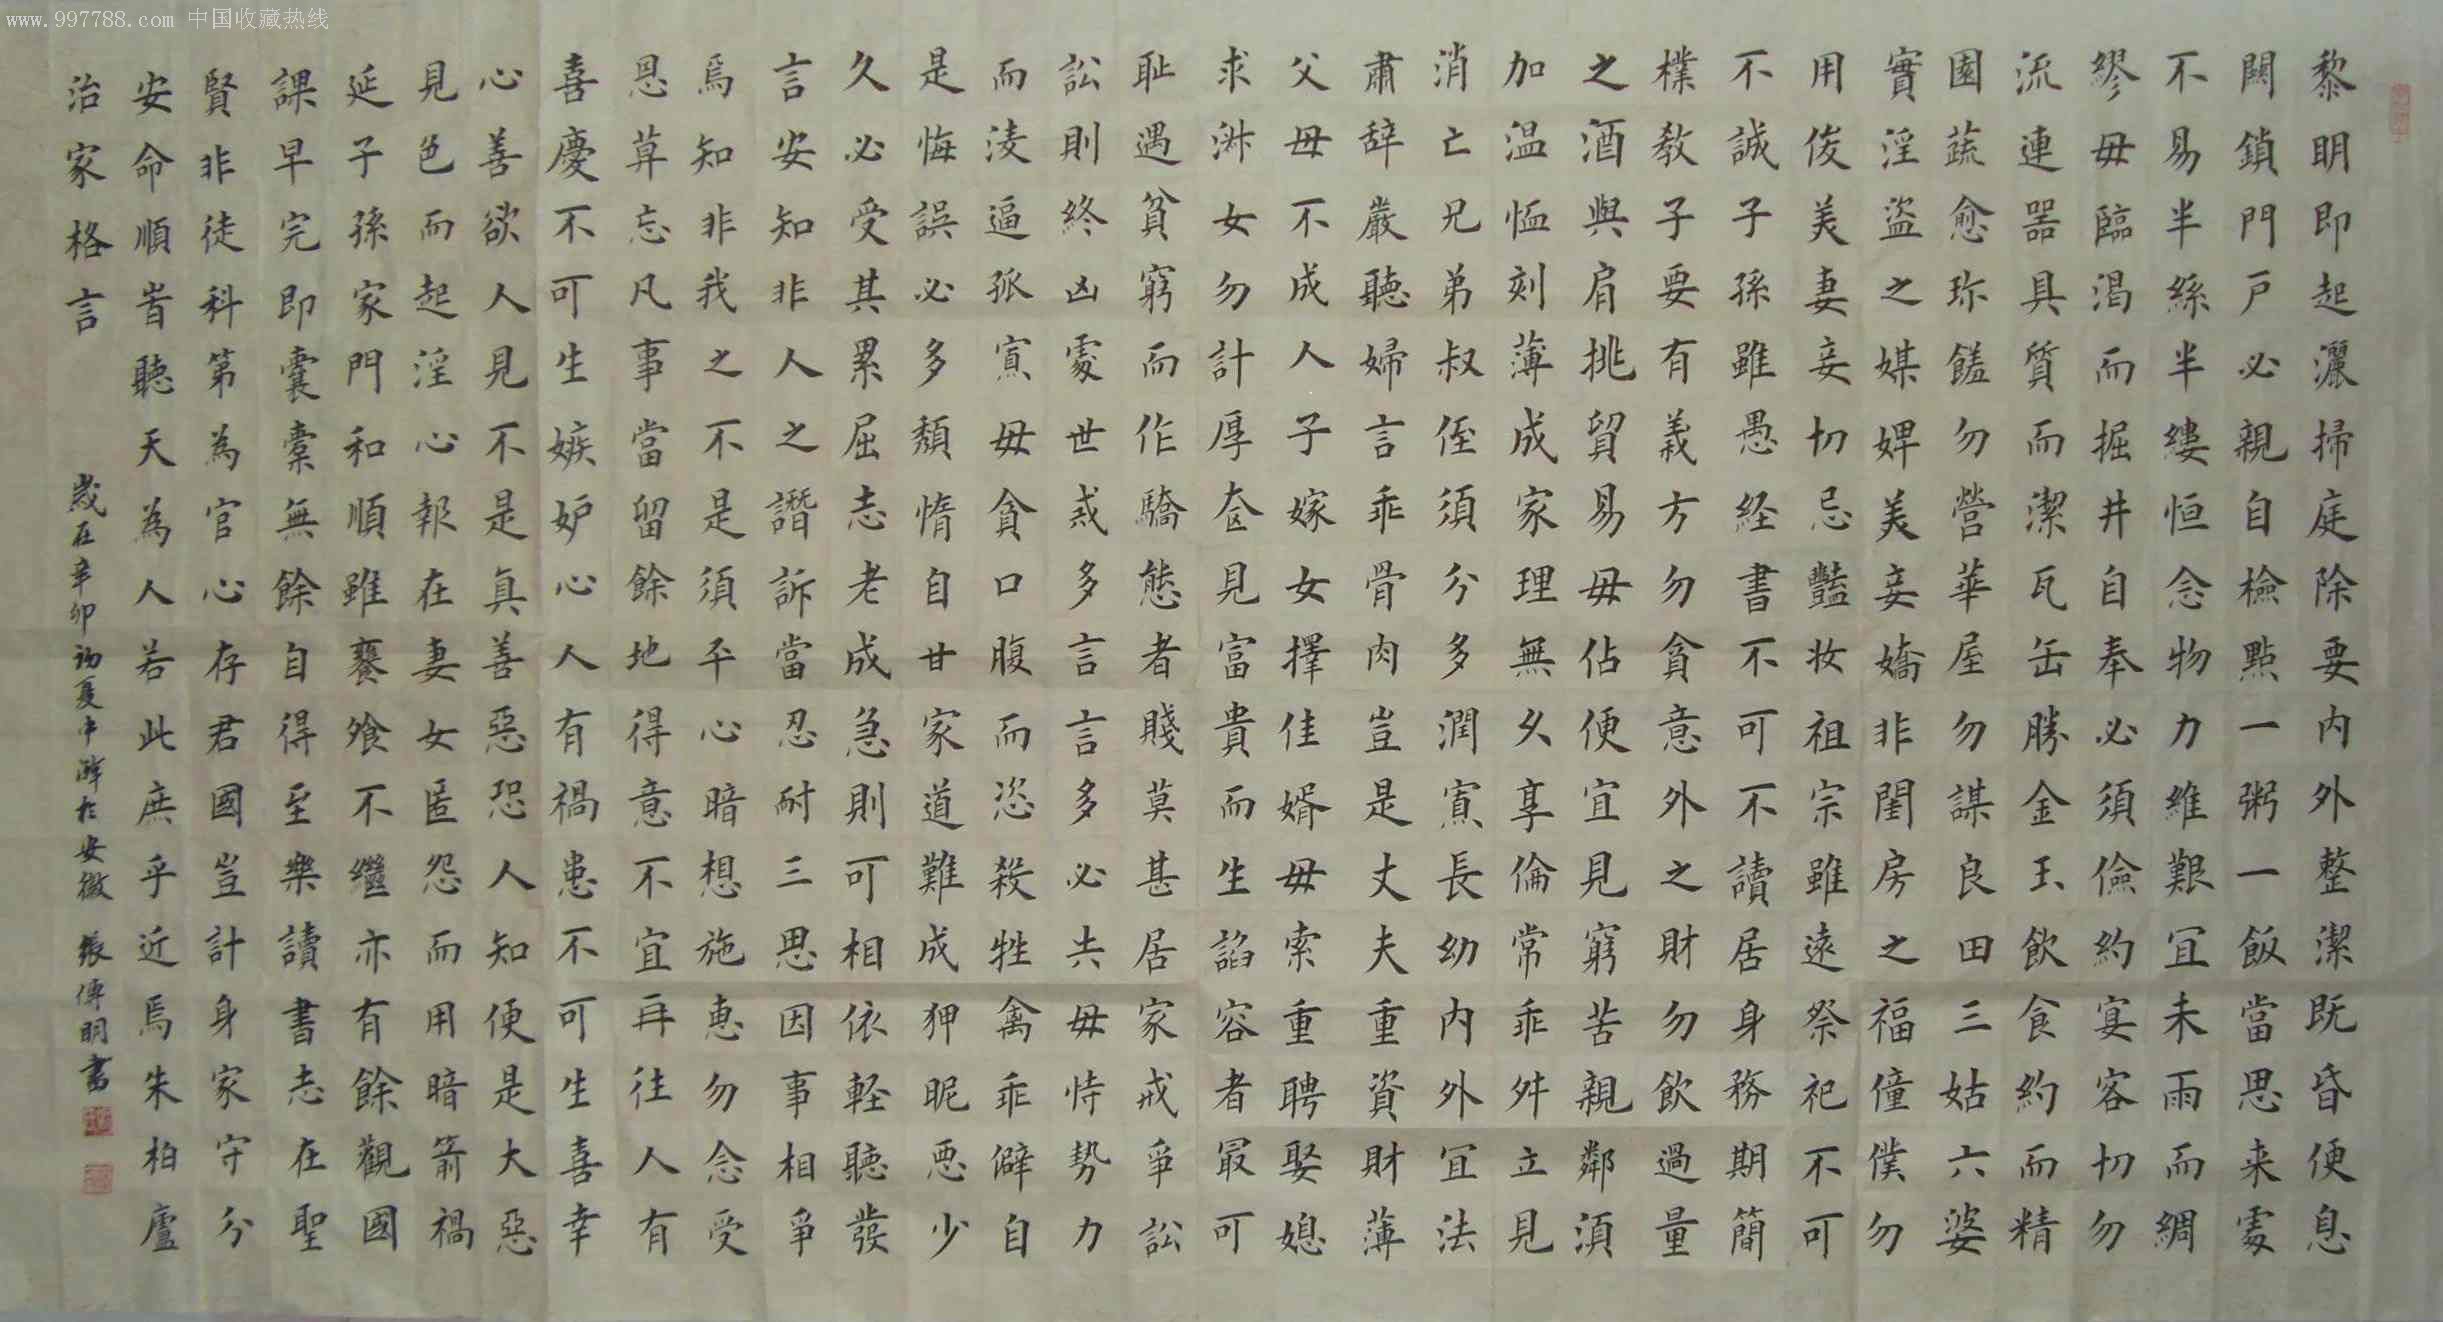 www.997788.com 中国收藏热线
黎明即起灑掃庭除要内外整潔既昏便息
闗鎖門戸必親自檢點一粥一飯當思来處
不易半絲半縷恒念物力維艱宜未雨而綢
繆毋臨渴而掘井自奉必須儉約宴客切勿
流連器具質而潔瓦缶勝金玉飲食約而精
園蔬愈珍饈勿營華屋勿謀良田三姑六婆
實淫盜之媒婢美妾嬌非閨房之福僮僕勿
用俊美妻妾切忌豔妆祖宗雖遠祭祀不可
不誠子孫雖愚经書不可不讀居身務期簡
樸教子要有義方勿貪意外之財勿飲過量
之酒與肩挑貿易毋佔便宜見窮苦親鄰須
加温恤刻薄成家理無久享倫常乖舛立見
消亡兄弟叔侄須分多潤寡長幼内外宜法
肅辞嚴聽婦言乖骨肉豈是丈夫重資財薄
父母不成人子嫁女擇佳婿毋索重聘娶媳
求淑女勿計厚奁見富貴而生諂容者最可
耻遇貧窮而作驕態者賤莫甚居家戒爭訟
訟則終凶處世戒多言言多必失毋恃勢力
而淩逼孤寡毋貪口腹而恣殺牲禽乖僻自
是悔誤必多頹惰自甘家道難成狎昵惡少
久必受其累屈志老成急則可相依軽聽發
言安知非人之譖訴當忍耐三思因事相爭
焉知非我之不是須平心暗想施惠勿念受
恩莫忘凡事當留餘地得意不宜再往人有
喜慶不可生嫉妒心人有禍患不可生喜幸
心善欲人見不是真善惡恐人知便是大惡
見色而起淫心報在妻女匿怨而用暗箭禍
延子孫家門和順雖饔飧不繼亦有餘觀國
課早完即囊橐無餘自得至樂讀書志在聖
賢非徒科第為官心存君國豈計身家守分
安命順旹聽天為人若此庶乎近焉朱柏廬
治家格言
歲在辛卯初夏中澣於安徽 張傳明書